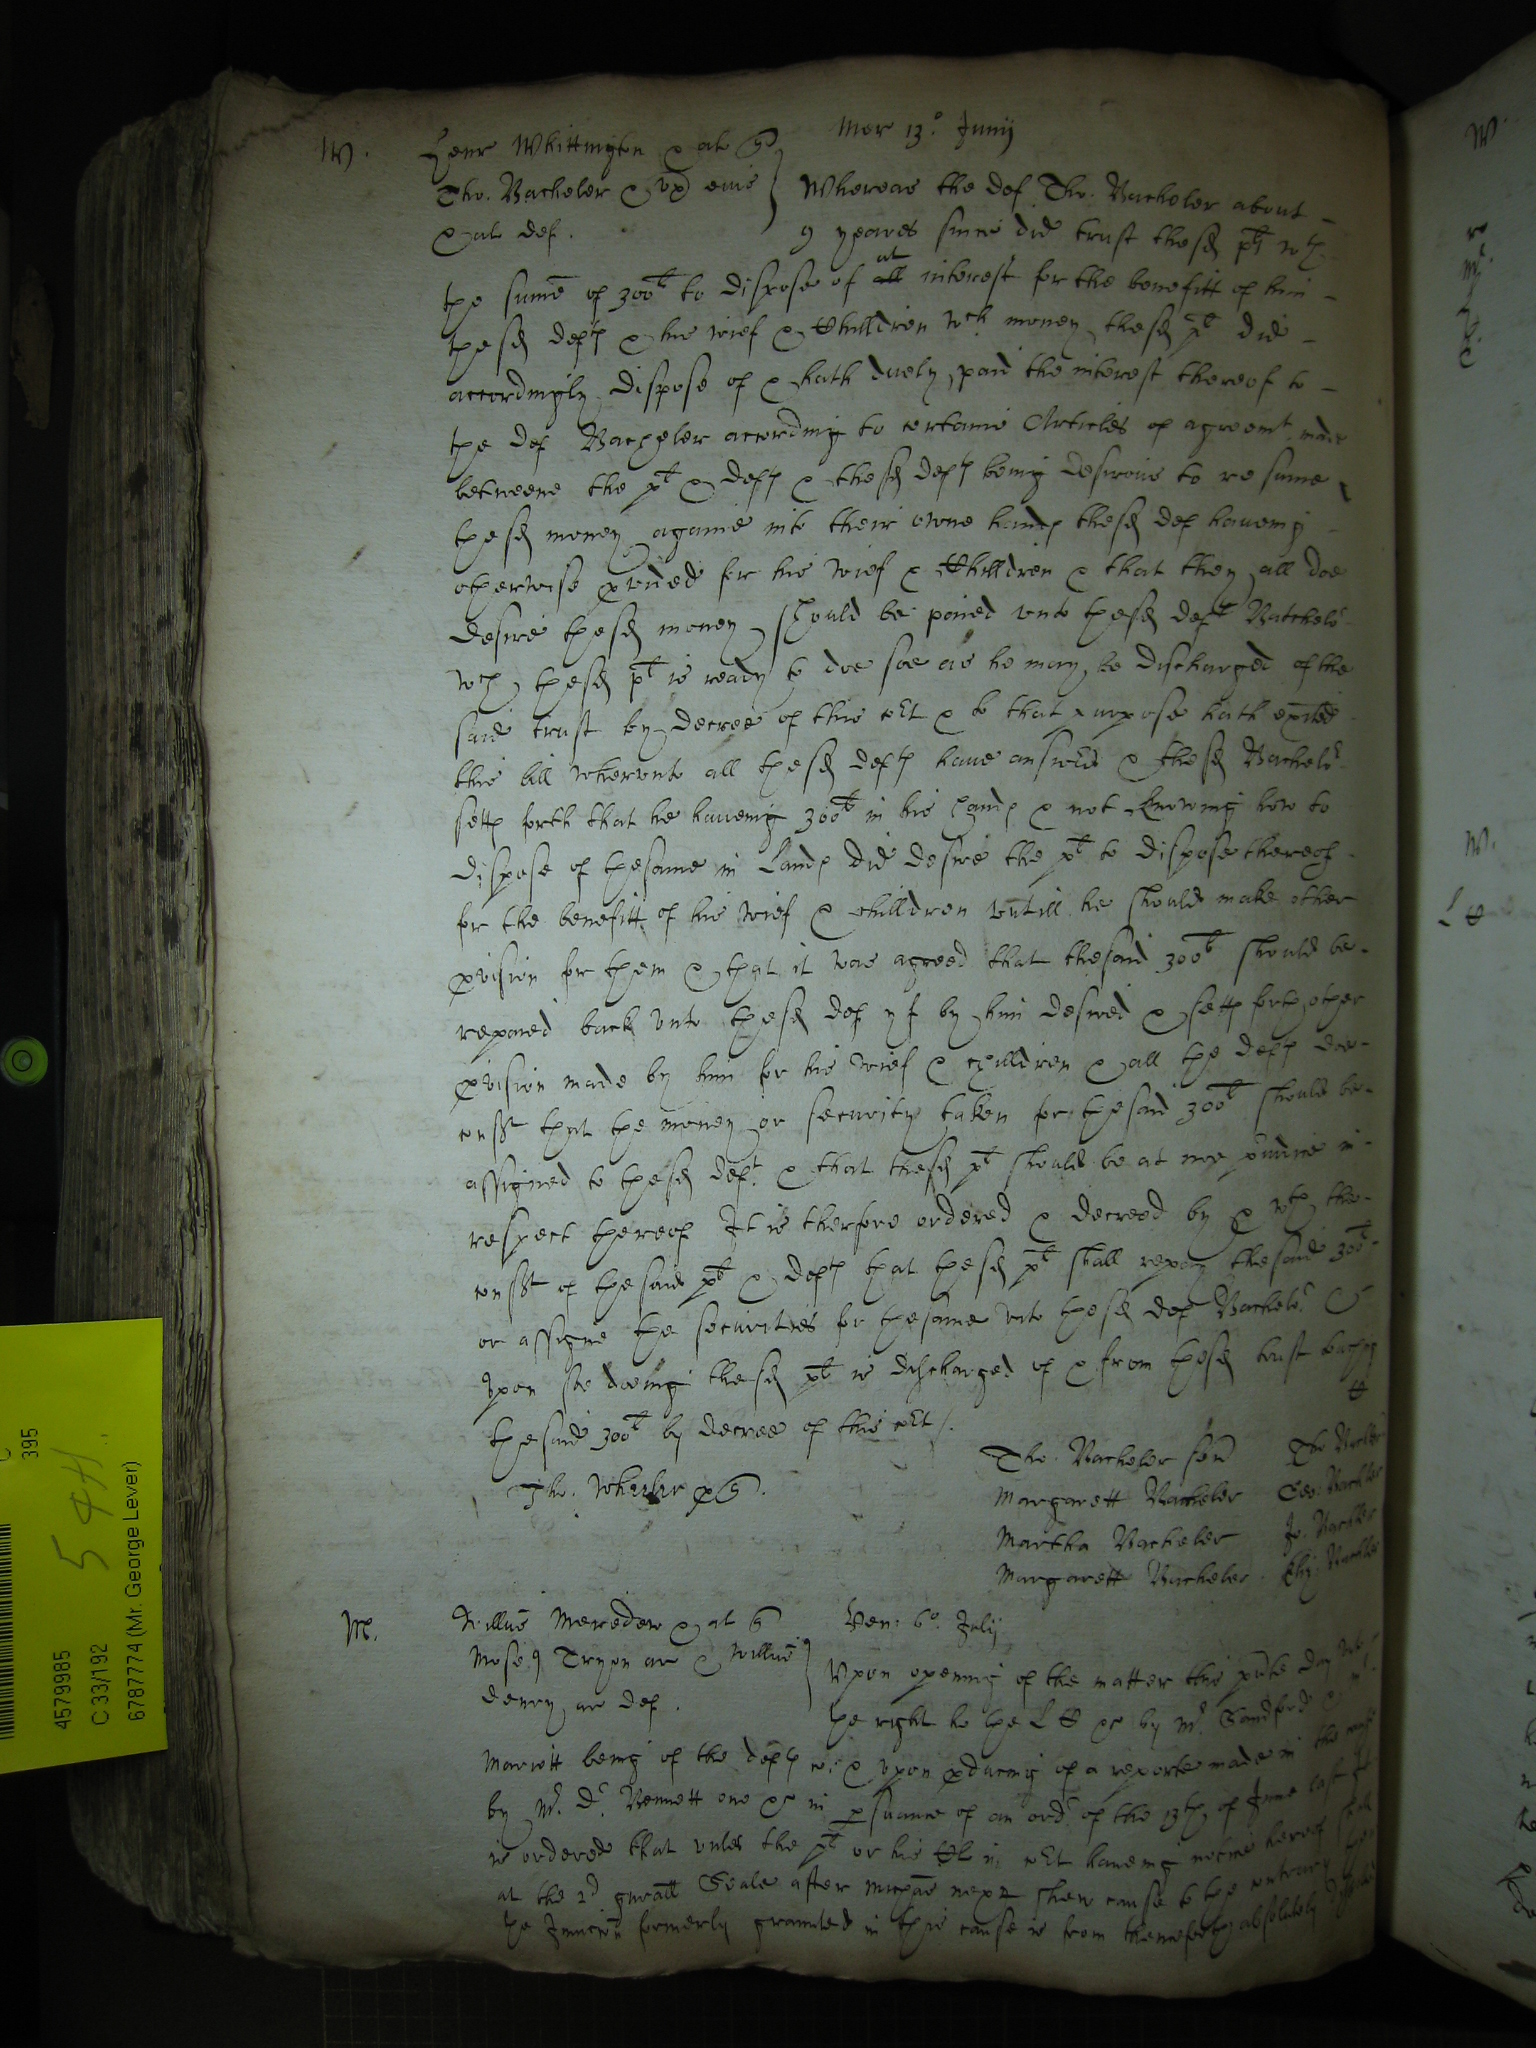 Mer 13.° Junij
W. Henr Whittington & al q
Tho. Bacheler & ux eius } Whereas the def Tho. Bacheler about
& al def. 9 yeares since did trust the sd plt wth
the sume of 300l to dispose of at all interest for the benefitt of him
the sd deft & his wief & Children wch money the sd plt did
accordingly dispose of & hath duely paid the interest thereof to
the def Bacheler according to certaine Articles of agreemt made
betweene the plt & defts & the sd defts being desirous to resume
the sd money againe into their owne hands the sd def haveing
otherwise provided for his wief & Children & that they all doe
desire the sd money should be paied unto the sd deft Batcheler
wch the sd plt is ready to doe soe as he may be discharged of the
said trust by decree of this Cort & to that purpose hath exited
this bill wherunto all the sd defts have answed & the sd Bacheler
setts forth that he haveing 300l in his hands & not knowing how to
dispose of the same in Lands did desire the plt to dispose thereof
for the benefitt of his wief & children untill he should make other
pvision for them & that it was agreed that the said 300l should be
repaied back unto the sd def yf by him desired & setts forth other
pvision made by him for his wief & children & all the defts doe
consent that the money or security taken for the said 300l should be
assigned to the sd deft & that the sd plt should be at noe pjudice in
respect thereof It is therfore ordered & decreed by & wth the
consent of the said plt & defts that the sd plt shall repay the said 300l
or assigne the securities for the same unto the sd def Bacheler &
Upon soe doeing the sd plt is discharged of & from the sd trust touching
the said 300l by decree of this Cort /.
Tho. Wheeler p q.
Tho. Bacheler sen Tho Bachler
Margarett Bacheler Geo: Bachler
Martha Bacheler Jo. Bachler
Margarett Bacheler. Eliz: Bachler
M. Willus Mereden & al q Ven: 6° Julij
Moses Tryon ar & Willus } Upon opening of the matter this pnte day unto
Henry ar def. the right ho the L &c by Mr. Sandford & Mr.
Mariott being of the defts co: & upon pduceing of a reporte made in the cause
by Mr. Dr. Bennett one &c in psuance of an ordr of the 13th of June last It
is ordered that unles the plt or his Cl in Cort haveing notice hereof shall
at the 2d gnrall Seale after Michas next shew cause to the contrary then
the Iniuncon formerly graunted in this cause is from thenceforth absolutely dissolved
4579985
C 33/192
6787774 (Mr. George Lever)
395
54H